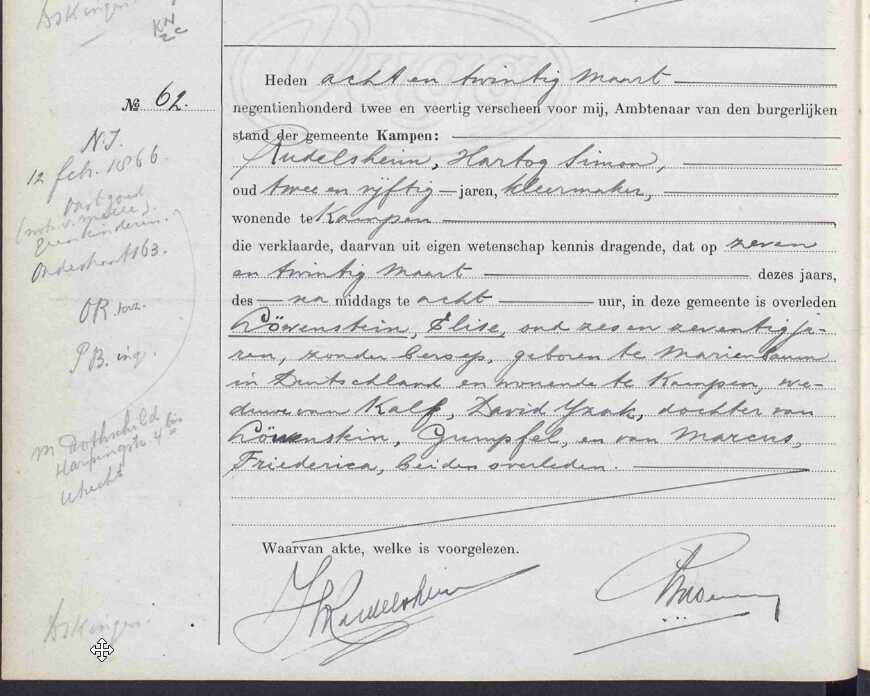 KN
2C
Heden acht en twintig Maart
№ 62.
negentienhonderd twee en veertig verscheen voor mij, Ambtenaar van den burgerlijken
stand der gemeente Kampen:
Rudelsheim, Hartog Simon,
oud twee en vijftig jaren, kleermaker,
wonende te Kampen
die verklaarde, daarvan uit eigen wetenschap kennis dragende, dat op zeven
en twintig Maart dezes jaars,
des na middags te acht uur, in deze gemeente is overleden
Löwenstein, Elise, oud zes en zeventig ja-
ren, zonder beroep, geboren te Marienbaum
in Duitschland en wonende te Kampen, we-
duwe van Kalf, David Yzak, dochter van
Löwenstein, Gumpfel, en van Marcus,
Friederica, beiden overleden.
Waarvan akte, welke is voorgelezen.
N.I.
12 feb. 1866.
vast goed
geen kinderen.
Oudestraat 163.
OR.
PB. ing.
M Rothschild
Utrecht
HRudelsheim